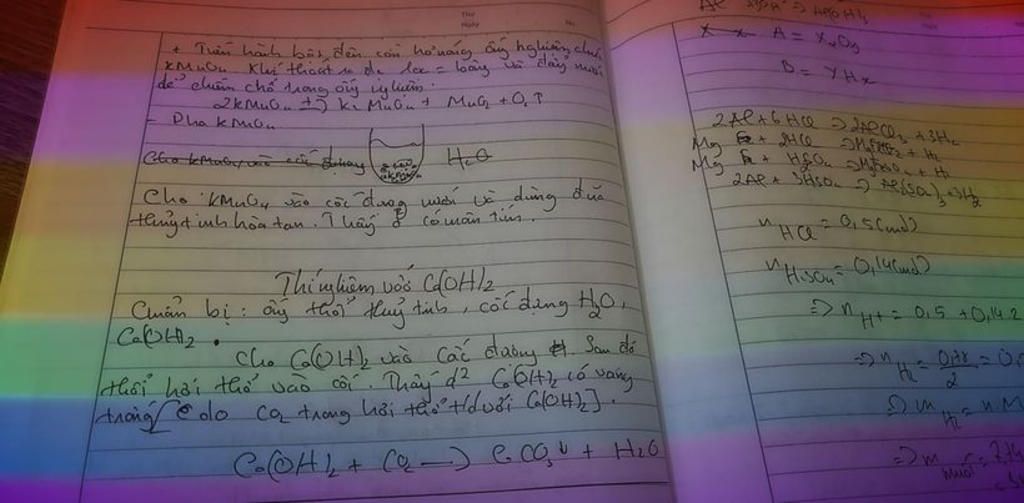 Thứ
Ngày
No.
+ Tiến hành bật đèn cồn hơ nóng ống nghiệm chứa
KMnO4. Khí thoát ra đc loại = bông và đẩy nước
để chiếm chỗ trong ống nghiệm.
2KMnO4 → K2MnO4 + MnO2 + O2 ↑
- Pha KMnO4
Cho KMnO4 vào cốc đựng
KMnO4
H2O
Cho KMnO4 vào cốc đựng nước và dùng đũa
thuỷ tinh hòa tan. Thấy có màu tím.
Thí nghiệm với Ca(OH)2
Chuẩn bị : ống thổi thuỷ tinh, cốc đựng H2O,
Ca(OH)2.
Cho Ca(OH)2 vào cốc đựng. Sau đó
thổi hơi thở vào cốc. Thấy d2 Ca(OH)2 có vẩng
trắng [do CO2 trong hơi thở t/d với Ca(OH)2].
Ca(OH)2 + CO2 → CaCO3 ↓ + H2O
A = XxOy
B = YHx
2Al + 6HCl → 2AlCl3 + 3H2
Mg + 2HCl → MgCl2 + H2
Mg + H2SO4 → MgSO4 + H2
2Al + 3H2SO4 → Al2(SO4)3 + 3H2
nHCl = 0,5 (mol)
nH2SO4 = 0,14 (mol)
=> nH+ = 0,5 + 0,14.2
=> nH2 = 0,78/2 = 0,
=> mH2 = n.M
=> m muối = 7,74